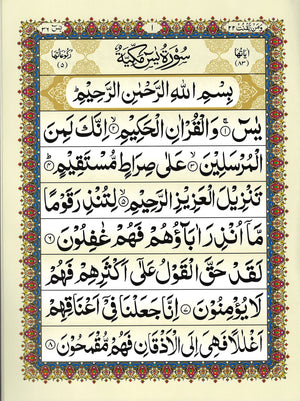 يٰسٓ ٣٦
١
وَمَن يَّقْنُتْ ٢٢
اٰيَاتُهَا (٨٣)
سُوْرَةُ يٰسٓ مَكِّيَّةٌ
رُكُوْعَاتُهَا (٥)
بِسْمِ اللّٰهِ الرَّحْمٰنِ الرَّحِيْمِ
يٰسٓ ۝١ وَالْقُرْاٰنِ الْحَكِيْمِ ۝٢ اِنَّكَ لَمِنَ
الْمُرْسَلِيْنَ ۝٣ عَلٰى صِرَاطٍ مُّسْتَقِيْمٍ ۝٤
تَنْزِيْلَ الْعَزِيْزِ الرَّحِيْمِ ۝٥ لِتُنْذِرَ قَوْمًا
مَّآ اُنْذِرَ اٰبَآؤُهُمْ فَهُمْ غٰفِلُوْنَ ۝٦
لَقَدْ حَقَّ الْقَوْلُ عَلٰٓى اَكْثَرِهِمْ فَهُمْ
لَا يُؤْمِنُوْنَ ۝٧ اِنَّا جَعَلْنَا فِيْٓ اَعْنَاقِهِمْ
اَغْلٰلًا فَهِيَ اِلَى الْاَذْقَانِ فَهُمْ مُّقْمَحُوْنَ ۝٨